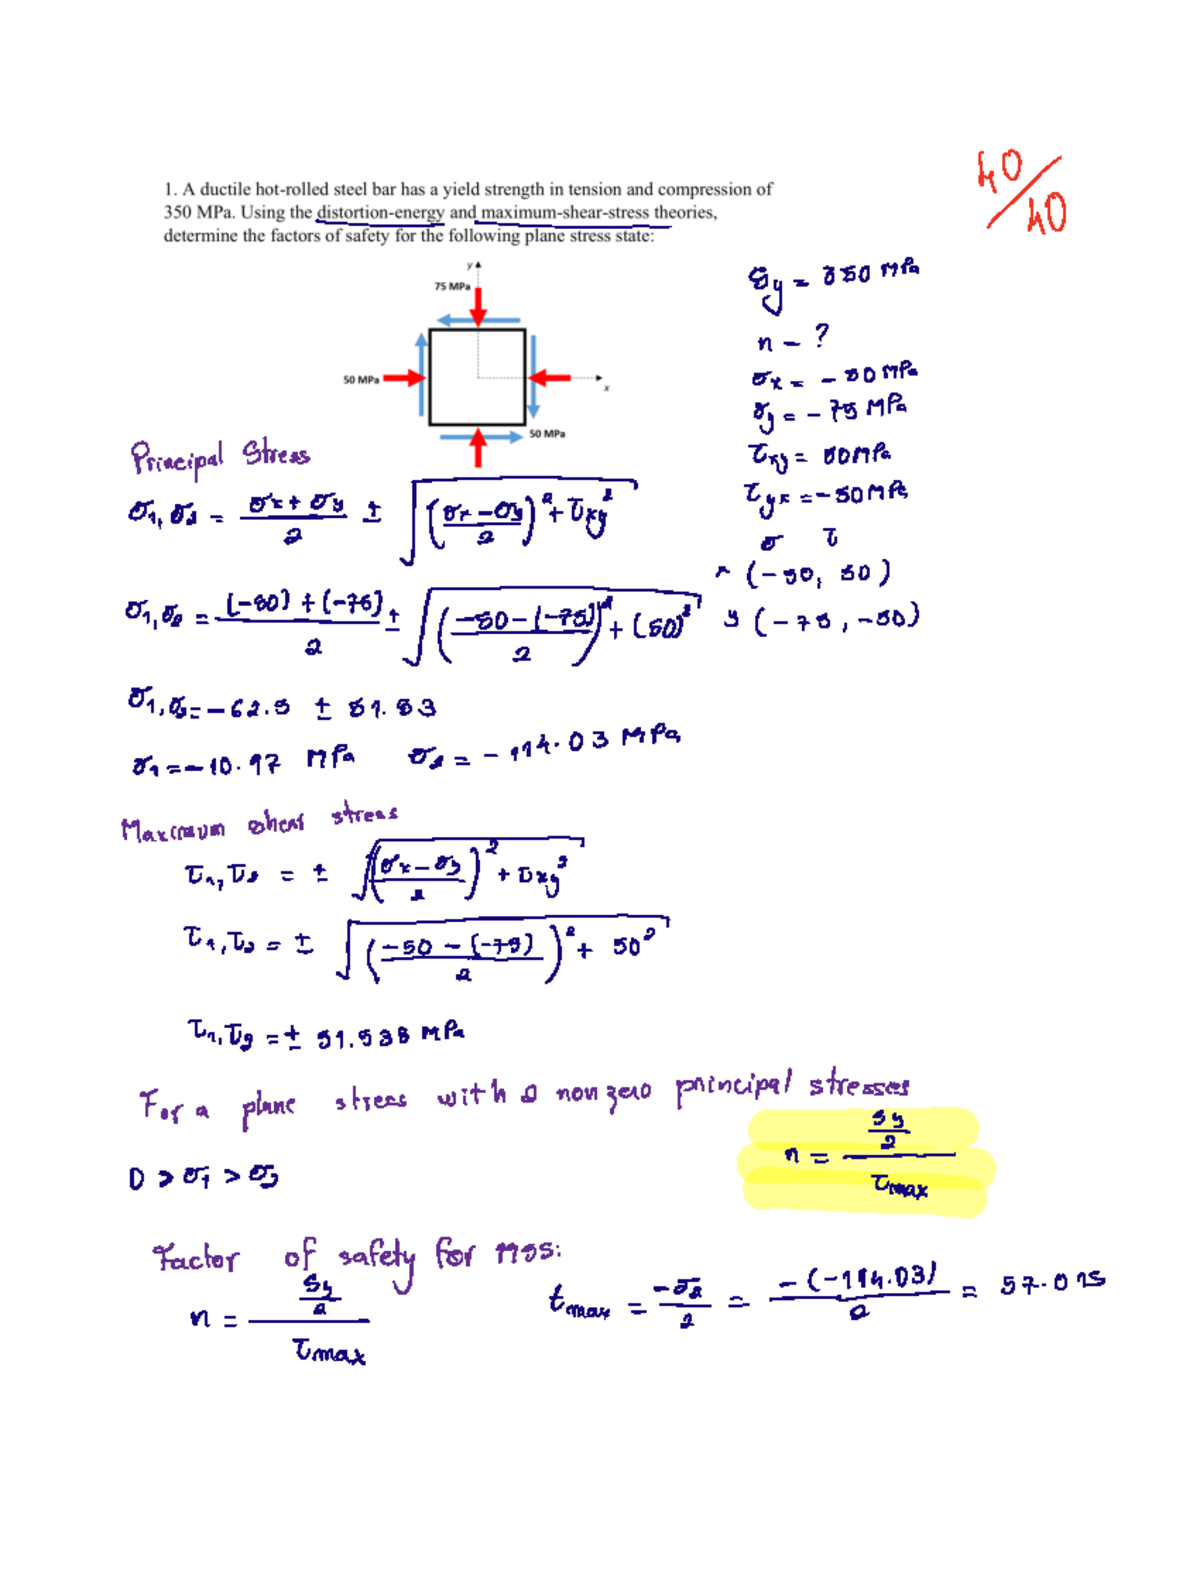 40/40
1. A ductile hot-rolled steel bar has a yield strength in tension and compression of
350 MPa. Using the distortion-energy and maximum-shear-stress theories,
determine the factors of safety for the following plane stress state:
y
75 MPa
50 MPa
x
50 MPa
Sy = 350 MPa
n - ?
σx = - 50 MPa
σy = - 75 MPa
τxy = 50 MPa
τyx = -50 MPa
σ τ
x (-50, 50)
y (-75, -50)
Principal Stress
σ1, σ2 = (σx + σy)/2 ± √(((σx - σy)/2)² + τxy²)
σ1, σ2 = ((-50) + (-75))/2 ± √(((-50 - (-75))/2)² + (50)²)
σ1, σ2 = - 62.5 ± 51.53
σ1 = - 10.97 MPa σ2 = - 114.03 MPa
Maximum shear stress
τ1, τ2 = ± √(((σx - σy)/2)² + τxy²)
τ1, τ2 = ± √(((-50 - (-75))/2)² + 50²)
τ1, τ2 = ± 51.538 MPa
For a plane stress with 2 non zero principal stresses
0 > σ1 > σ2
n = (Sy/2)/τmax
Factor of safety for MSS:
n = (Sy/2)/τmax
tmax = -σ2/2 = -(-114.03)/2 = 57.015